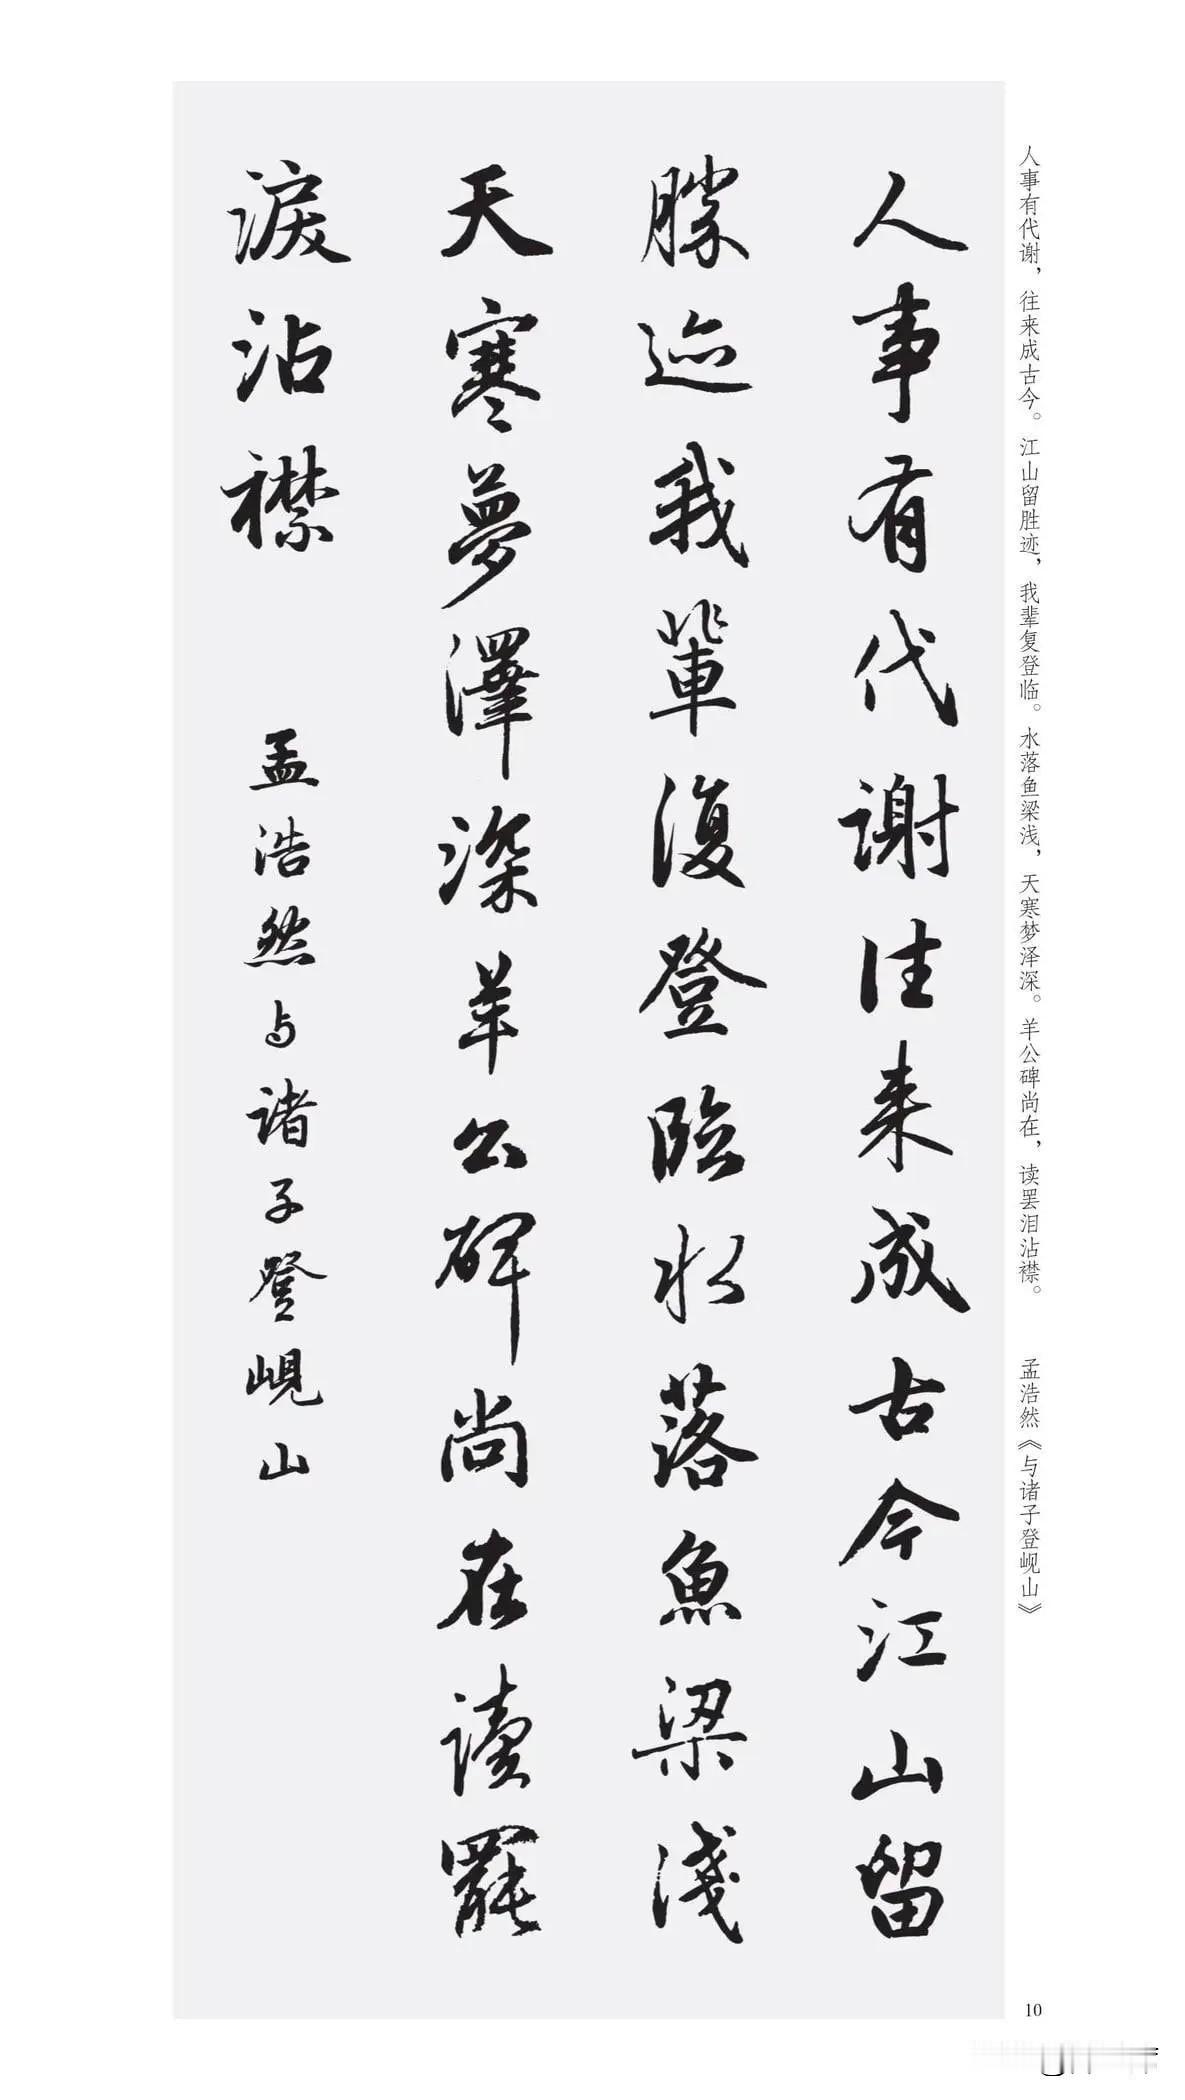 人事有代谢，往来成古今。江山留胜迹，我辈复登临。水落鱼梁浅，天寒梦泽深。羊公碑尚在，读罢泪沾襟。　孟浩然《与诸子登岘山》
人事有代謝往来成古今江山留
勝迹我輩復登臨水落魚梁淺
天寒夢澤深羊公碑尚在讀罷
淚沾襟　孟浩然与诸子登峴山
10